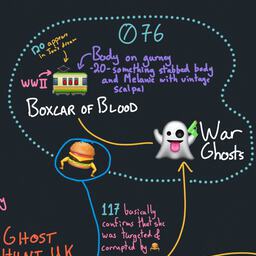 076
DO appears
in Jon's dream
WWII
Body on gurney
20-something stabbed body
and Melanie with vintage
scalpal
BOXCAR OF BLOOD
War
Ghosts
117 basically
confirms that she
was targeted &
corrupted by
GHOST
HUNT UK